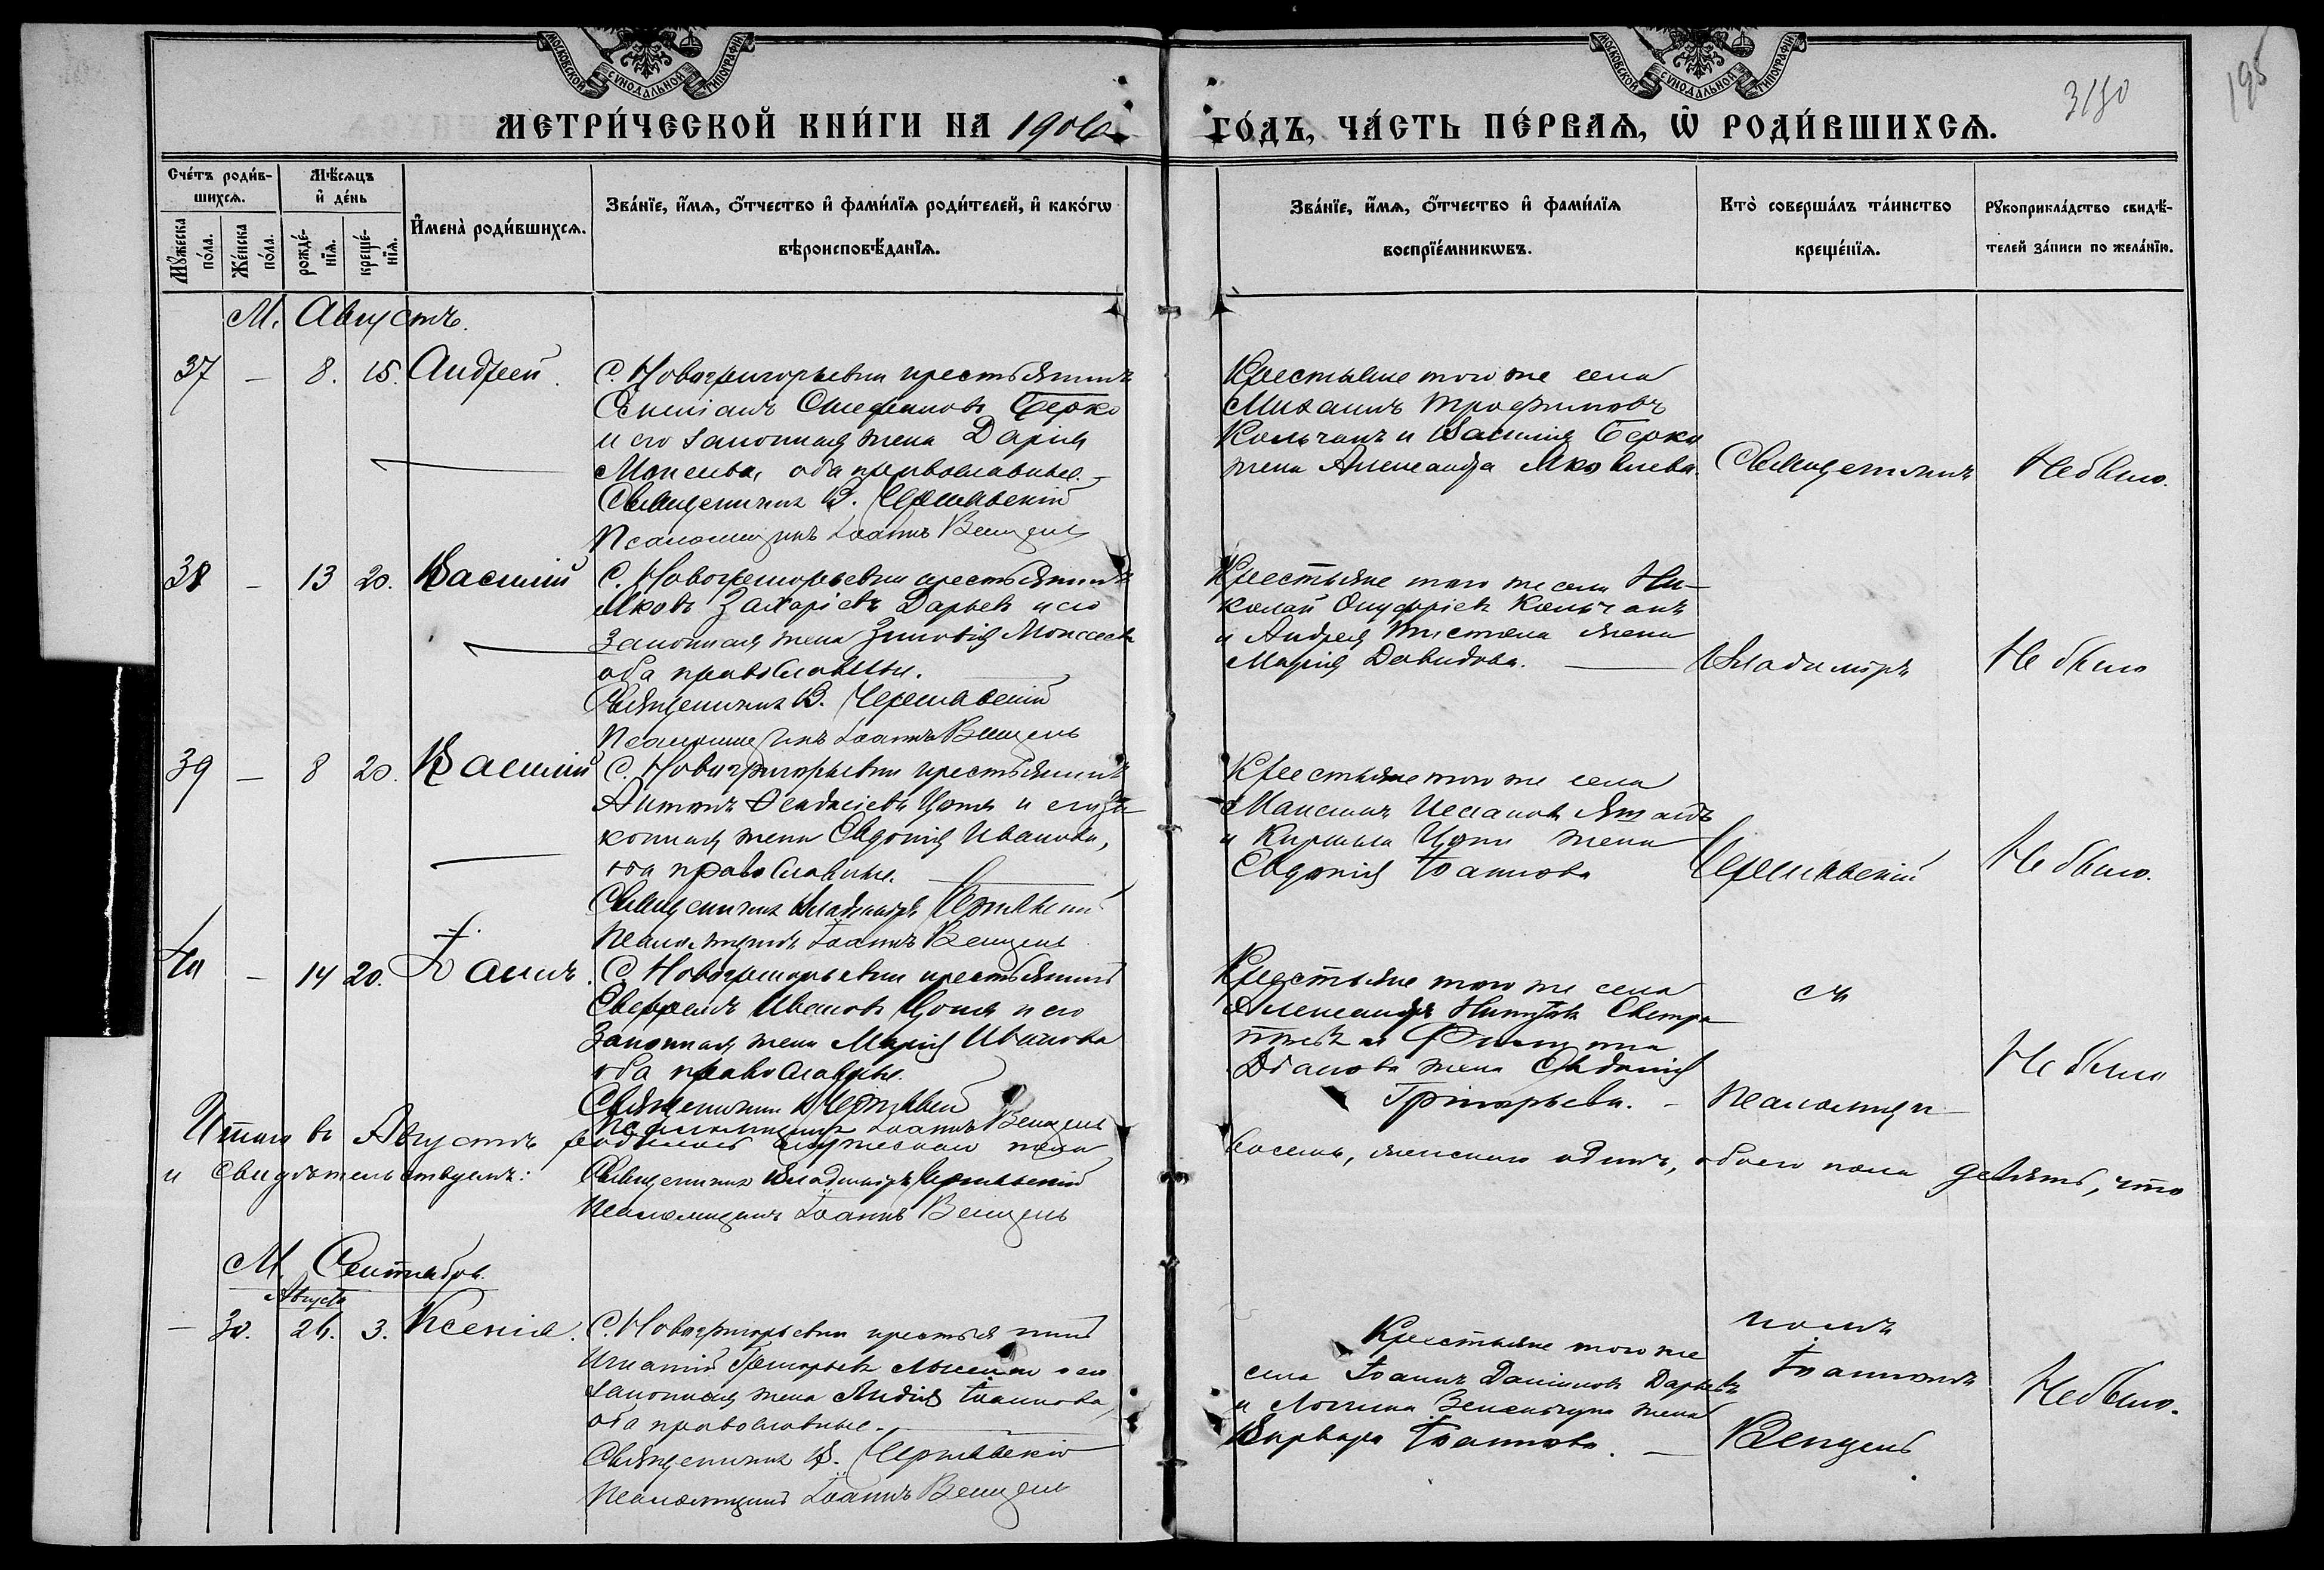 МОСКОВСКОЙ СУНОДАЛЬНОЙ ТИПОГРАФІИ
МОСКОВСКОЙ СУНОДАЛЬНОЙ ТИПОГРАФІИ
МЕТРИ́ЧЕСКОЙ КНИ́ГИ НА 1906
ГО́ДЪ, ЧА́СТЬ ПЕ́РВАѦ, Ѡ҆ РОДИ́ВШИХСѦ.
3150
195
Сче́тъ роди́в-
шихсѧ.
Мѣ́сѧцъ
и҆ де́нь
Мꙋ́жеска
по́ла.
Же́нска
по́ла.
рожде́-
нїѧ.
креще́-
нїѧ.
И҆мена̀ роди́вшихсѧ.
Зва́нїе, и҆́мѧ, ѻ҆́тчество и҆ фами́лїѧ роди́телей, и҆ како́гѡ
вѣроисповѣ́данїѧ.
Зва́нїе, и҆́мѧ, ѻ҆́тчество и҆ фами́лїѧ
воспрїе́мникѡвъ.
Кто̀ соверша́лъ та́инство
креще́нїѧ.
Рꙋкоприкла́дство свидѣ́-
телей за́писи по жела́нїю.
М. Августъ.
37 — 8. 15. Андрей.
С. Новогригорьевки крестьянинъ
Стефановъ Берко
и его законная жена Дарія
Моисеева, оба православные.
Священникъ В. Чернявскій
Псаломщикъ Іоаннъ Венцель
Крестьяне того же села
Михаилъ Трофимовъ
Кольчакъ и Василія Берко
жена Александра Яковлева.
Священникъ
Не было.
38 — 13 20. Василій
С. Новогригорьевки крестьянинъ
Яковъ Захаріевъ Дарьевъ и его
законная жена Зиновія Моисеева
оба православны.
Священникъ В. Чернявскій
Псаломщикъ Іоаннъ Венцель
Крестьяне того же села Ни-
колай Онуфріевъ Кольчакъ
и Андрея жена
Марія Давидова.
Владиміръ
Не было
39 — 8 20. Василій
С. Новогригорьевки крестьянинъ
Антонъ Цопа и его за-
конная жена Евдокія Иванова,
оба православные.
Священникъ Владиміръ Чернявскій
Псаломщикъ Іоаннъ Венцель
Крестьяне того же села
Максимъ
и Кирилла Цопы жена
Евдокія Іоаннова
Чернявскій
Не было.
40 — 14 20. Іоаннъ
С. Новогригорьевки крестьянинъ
Ивановъ Цопа и его
законная жена Марія Иванова
оба православны.
Священникъ В. Чернявскій
Псаломщикъ Іоаннъ Венцель
Крестьяне того же села
Александръ
и Филиппа
жена Евдокія
Григорьева.
съ
Псаломщи-
Не было
Итого въ Августѣ родилось мужескаго пола
восемь, женскаго одинъ, обоего пола девять, что
и свидѣтельствуемъ:
Священникъ Владиміръ Чернявскій
Псаломщикъ Іоаннъ Венцель
М. Сентябрь.
Августа
— 30. 26. 3. Ксенія.
С. Новогригорьевки крестьянинъ
Игнатій Григорьевъ и его
законная жена Лидія Іоаннова,
оба православные.
Священникъ В. Чернявскій
Псаломщикъ Іоаннъ Венцель
Крестьяне того же
села Іоаннъ Даніиловъ Дарьевъ
и Логина жена
Варвара Іоаннова.
комъ
Іоанномъ
Венцель
Не было.